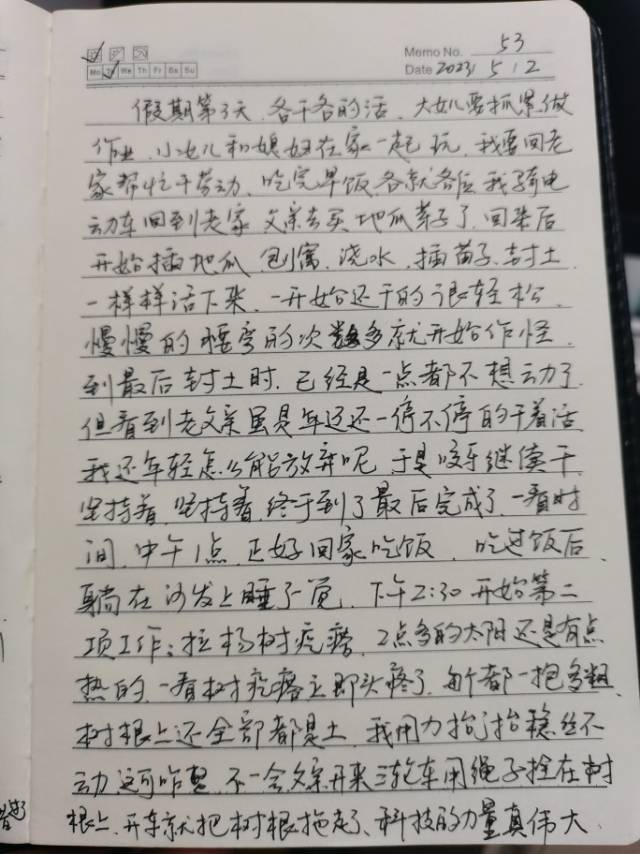 Memo No. 53
Mo Tu We Th Fr Sa Su
Date 2023 5 2
假期第3天、各干各的活、大女儿要抓紧做
作业、小女儿和媳妇在家一起玩、我要回老
家帮忙干劳动、吃完早饭各就各位我骑电
动车回到老家父亲去买地瓜苗子了、回来后
开始插地瓜、刨窝、浇水、插苗子、封土、
一样样活下来、一开始还干的很轻松、
慢慢的腰弯的次数多就开始作怪、
到最后封土时、已经是一点都不想动了
但看到老父亲虽是年迈还一停不停的干着活
我还年轻怎么能放弃呢、于是咬牙继续干
坚持着、坚持着、终于到了最后完成了、一看时
间、中午1点、正好回家吃饭、吃过饭后、
躺在沙发上睡了一觉、下午2:30开始第二
项工作：拉杨树疙瘩、2点多的太阳还是有点
热的、一看树疙瘩立即头疼了、每个都一抱多粗、
树根上还全部都是土、我用力抬了抬稳丝不
动这可咋整、不一会父亲开来三轮车用绳子拴在树
根上、开车就把树根拖走了、科技的力量真伟大、